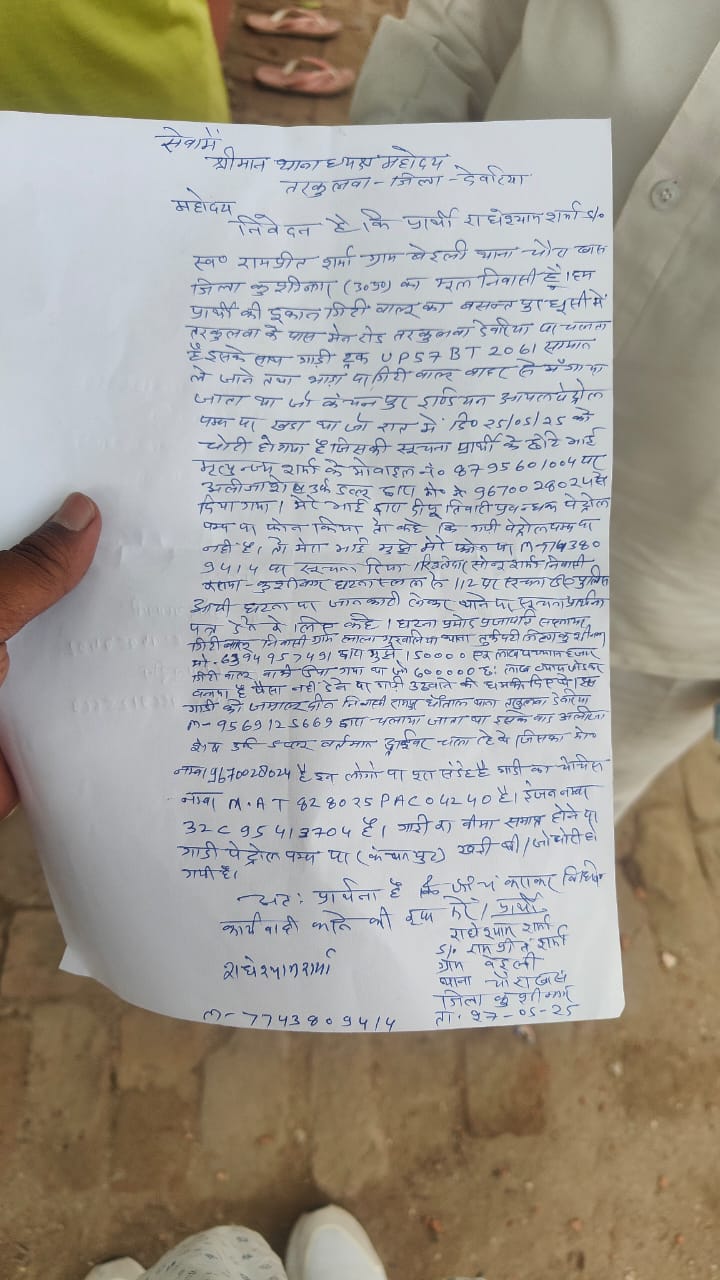 सेवामें
श्रीमान थानाध्यक्ष महोदय
तरकुलवा - जिला - देवरिया
महोदय
निवेदन है कि प्रार्थी राधेश्याम शर्मा S/o
स्व० रामप्रीत शर्मा ग्राम बेइली थाना चौरा खास
जिला कुशीनगर (उ०प्र०) का मूल निवासी है। हम
प्रार्थी की दुकान गिटी बालू का बसन्तपुर धूसी में
तरकुलवा के पास मेन रोड तरकुलवा देवरिया पर चलता
है इसके साथ गाड़ी ट्रक UP57BT2061 सामान
ले जाने तथा भाड़ा पर गिटी बालू बाहर से मँगाया
जाता था जो कंचनपुर इण्डियन आयल पेट्रोल
पम्प पर खडा था जो रात में दि० 25/05/25 को
चोरी हो गया है जिसकी सूचना प्रार्थी के छोटे भाई
मृत्युन्जय शर्मा के मोबाइल नं० 8795601004 पर
उर्फ डब्लू द्वारा मो० नं० 9670028024 से
दिया गया। मेरे भाई द्वारा दीपू तिवारी प्रबन्धक पेट्रोल
पम्प पर फोन किया तो कहे कि गाड़ी पेट्रोल पम्प पर
नहीं है। तो मेरा भाई मुझे मेरे फोन पर M-774380
9414 पर सूचना दिया। शर्मा निवासी
कुशीनगर घटना स्थल से 112 पर सूचना पुलिस
आयी घटना पर जानकारी लेकर थाने पर सूचना प्रार्थना
पत्र देने के लिए कहे। घटना प्रमोद प्रजापति
गिटी बालू निवासी ग्राम गुरवलिया थाना तुर्कपट्टी जिला कुशीनगर
मो. 6394957491 द्वारा मुझे 150000 एक लाख पच्चास हजार
गिटी बालू बाकी दिया गया था जो 600000 छः लाख ब्याज जोडकर
बनाया है पैसा नहीं देने पर गाड़ी उठवाने की धमकी दिए थे। इस
गाड़ी को निवासी रामपुर थाना तरकुलवा देवरिया
M-9569125669 द्वारा चलाया जाता था इसके बाद
शेख उर्फ वर्तमान ड्राईवर चला रहे थे जिसका मो०
नम्बर 9670028024 है इन लोगो पर शक संदेह है गाडी का चेचिस
नम्बर M.AT828025PAC04240 है। इंजन नम्बर
32C95413704 है। गाडी का बीमा समाप्त होने पर
गाडी पेट्रोल पम्प पर (कंचनपुर) खड़ी थी। जो चोरी हो
गयी है।
अतः प्रार्थना है कि जाँच कराकर विधिक
कार्यवाही करने की कृपा करें। प्रार्थी
राधेश्याम शर्मा
S/o रामप्रीत शर्मा
राधेश्याम शर्मा
ग्राम बेइली
थाना चौराखास
जिला कुशीनगर
M-7743809414
ता. 27-05-25